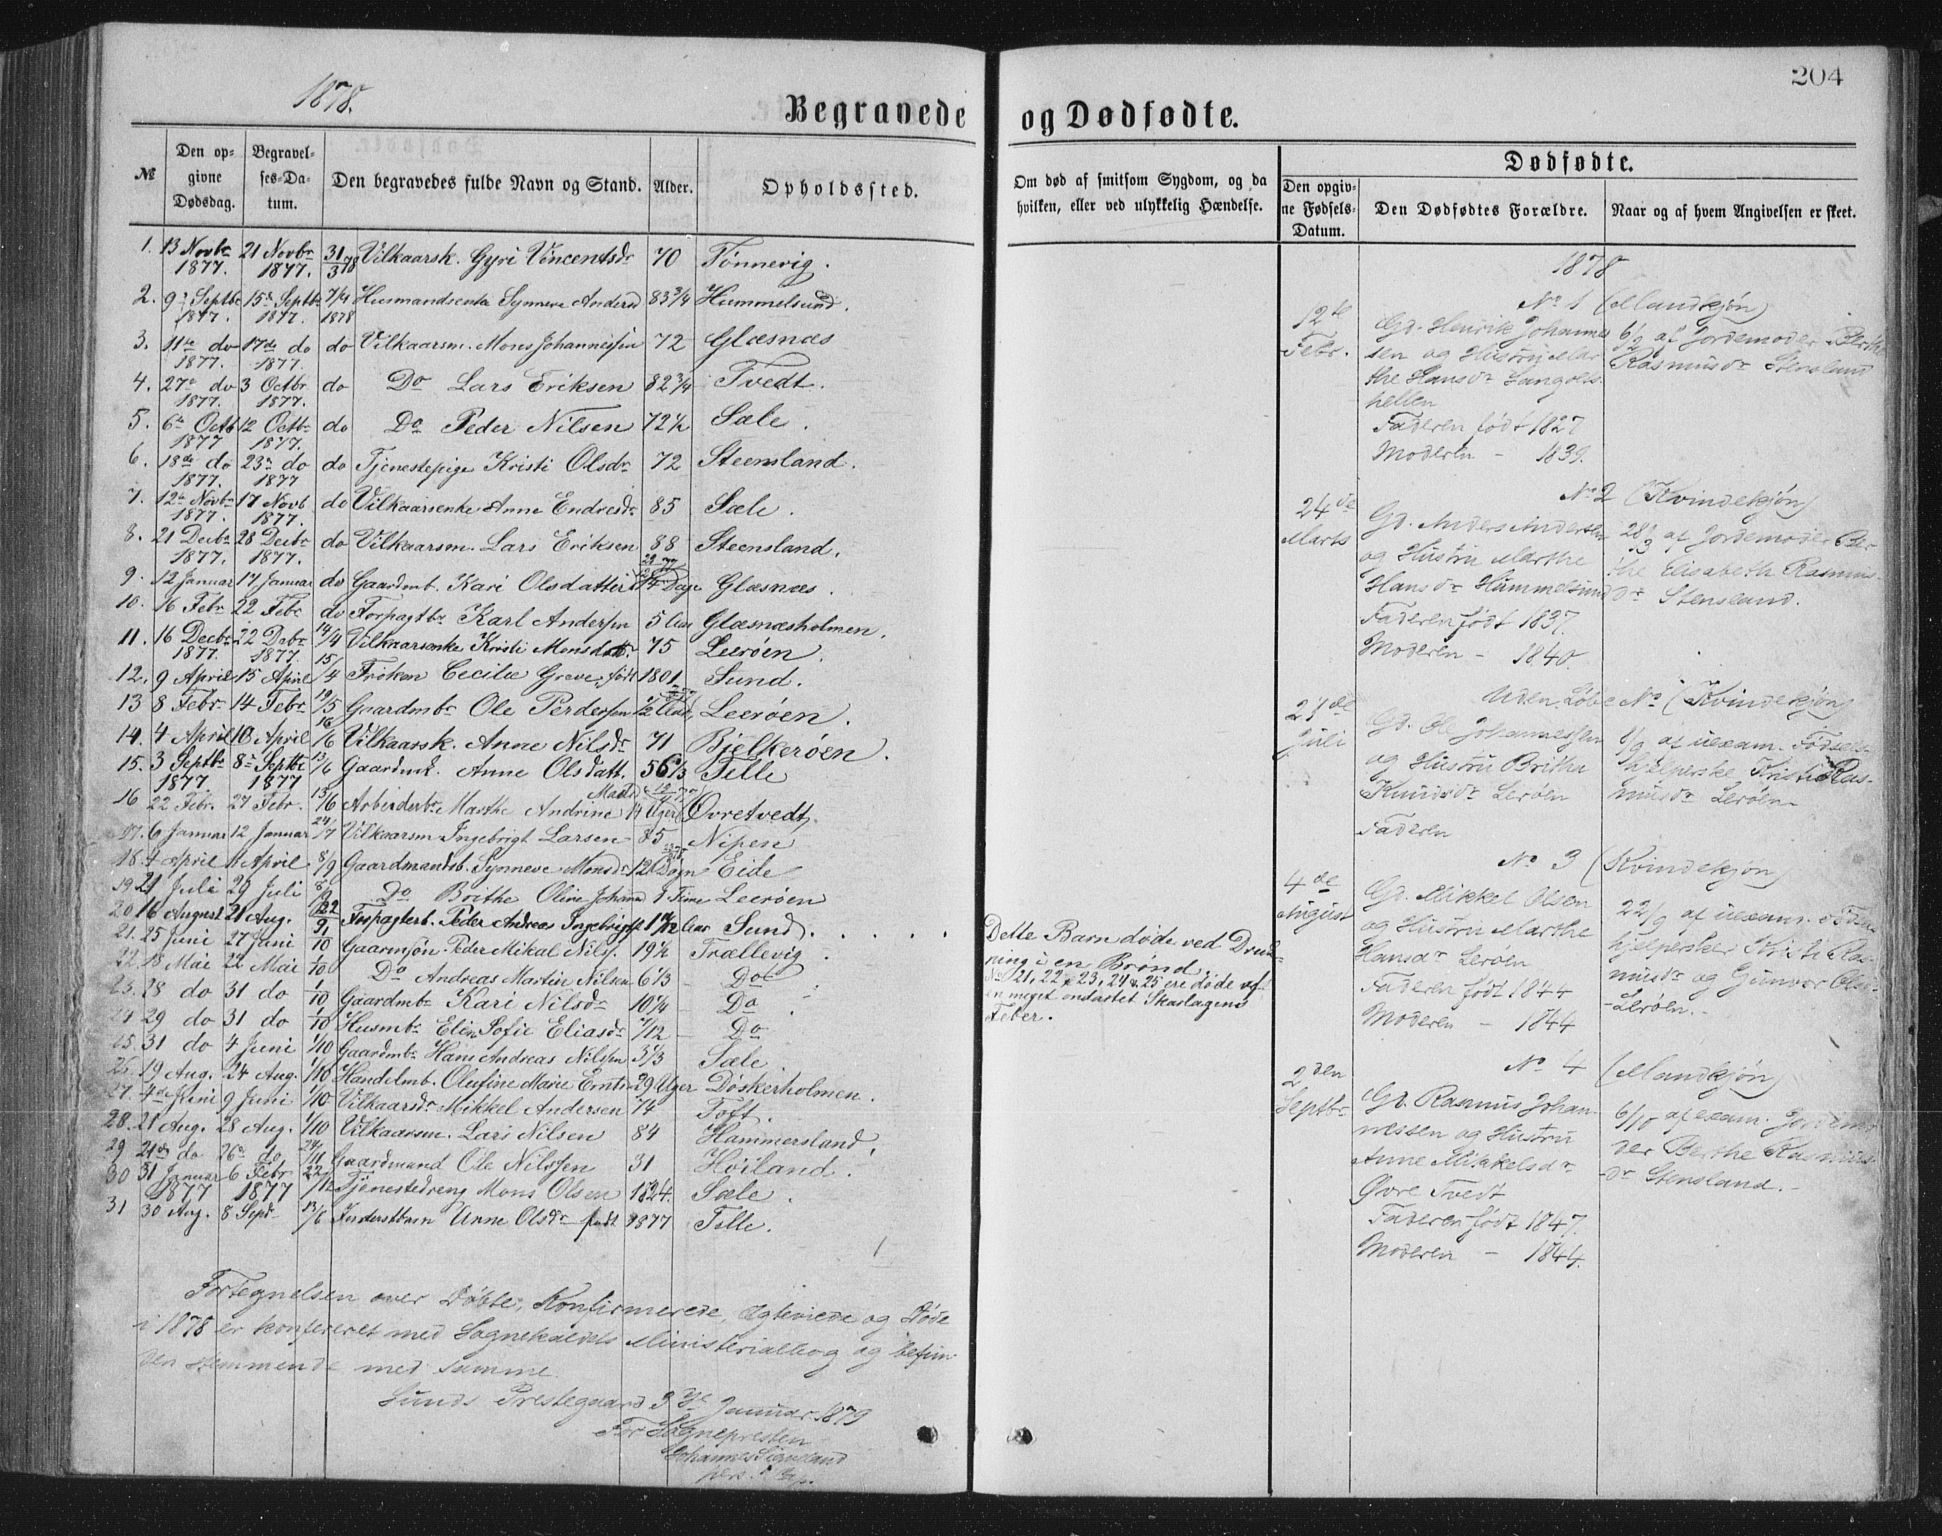 204
1878.
Begravede og Dødfødte.
№
Den opgivne Dødsdag.
Begravelses-Datum.
Den begravedes fulde Navn og Stand.
Alder.
Opholdssted.
Om død af smitsom Sygdom, og da hvilken, eller ved ulykkelig Hændelse.
Dødfødte.
Den opgivne Fødsels-Datum.
Den Dødfødtes Forældre.
Naar og af hvem Angivelsen er skeet.
1. 13 Novbr 1877. 21 Novbr 1877. 31/3 78 Vilkaarsk. Gyri Vincentsdr 70 Tønnevig.
2. 9 Septbr 1877. 15de Septbr 1877. 7/4 1878 Husmandsenke Synneve Andersd 83 3/4 Hummelsund.
3. 11te do 1877. 17de do 1877. do Vilkaarsm. Mons Johannessen 72 Glæsnæs
4. 27de do 1877. 3 Octbr 1877. do Do Lars Eriksen 82 3/4 Tvedt.
5. 6te Octb 1877 12 Octbr 1877. do Do Peder Nilsen 72 1/2 Sæle.
6. 18de do 1877. 23de do 1877 do Tjenestepige Kristi Olsdr 72 Steensland.
7. 12te Novbr 1877. 17 Novb 1877. do Vilkaarsenke Anne Endresdr 85 Sæle.
8. 21 Decbr 1877. 28 Decbr 1877. do Vilkaarsm. Lars Eriksen 88 Steensland.
9. 12 Januar 17 Januar do Gaardmb. Kari Olsdatter 14 Dage Glæsnæs.
10. 16 Febr 22 Febr do Forpagtbr Karl Andersen 5 Glæsnæsholmen.
11. 16 Decbr 1877. 22 Decbr 1877. 14/4 Vilkaarsenke Kristi Monsdatr. 75 Leerøen.
12. 9 April 15 April 15/4 Frøken Cecilie Greve, født 1801 Sund.
13 8 Febr 14 Febr 19/5 Gaardmbr Ole Perdersen 1/2 Leerøen.
14. 4 April 10 April 16/6 Vilkaarsk. Anne Nilsdr 71 Bjelkerøen.
15. 3 Septbr 1877. 8de Septbr 1877 13/6 Gaardmk. Anne Olsdatt. 56 1/3 Telle
16 22 Febr. 27 Febr. 13/6 Arbeiderbr Marthe Andrine 14 Uger Øvretvedt.
17. 6 Januar 12 Januar 24/7 Vilkaarsm Ingebrigt Larsen 85 Nipen
18. 4 April 11 April 8/9 Gaardmandsb. Synneve Monsdr 12 Døgn Eide
19. 21 Juli 29 Juli Do Brithe Oline Johanna 1 Time Leerøen
20 16 August 21 Aug. 22/9 Forpagterb. Peder Andreas Ingebrigts. Sund.
21. 25 Juni 27 Juni 1/10 Gaarmsøn Peder Mikal Nils. 19 1/2 Trællevig.
22. 18 Mai 22 Mai 1/10 Do Andreas Martin Nilsen 6 1/3 Do
23. 28 do 31 do 1/10 Gaardmbr Kari Nilsdr 10 1/4 Do
24 29 do 31 do 1/10 Husmbr Elen Sofie Eliasdr 7/12 Do
25. 31 do 4 Juni 1/10 Gaardmbr Hans Andreas Nilssen 3 1/3 Sæle.
26. 19 Aug. 24 Aug. 1/10 Handelmb. Olufine Marie 29 Uger Døskerholmen.
27. 4de Juni 9 Juni 1/10 Vilkaarsdr Mikkel Andersen 74 Toft.
28. 21 Aug. 28 Aug. 1/10 Vilkaarsm. Lars Nilsen 84 Hammersland.
29 21de do 26de do 24/11 Gaardmand Ole Nilssen 31 Høiland.
30 31 Januar 1877 6 Febr 1877 22/12 Tjenestedreng Mons Olsen 1824. Sæle.
31 30 Aug. 8 Sept. 13/6 Inderstbarn Anne Olsdr født 1877 Telle.
Fortegnelsen over Døbte, Konfirmerede, Egteviede og Døde
i 1878 er konfereret med Sognekaldets Ministerialbog og befun-
den stemmende med samme.
Sunds Prestegaard 3de Januar 1879
For Sognepresten
Johannes
Dette Barn døde ved Druk-
ning i en Brønd.
No 21, 22, 23, 24 & 25 ere døde af
en meget ondartet Skarlagens
Feber.
1878
No 1 (Mandkjøn)
12te Febr.
Gd. Henrik Johannes-
sen og Hustru Mar-
the Hansdr Langolt-
hellen
Faderen født 1827
Moderen – 1839.
6/2 af Jordemoder Berthe
Rasmusdr Stensland
No 2 (Kvindekjøn)
24de Marts
Gd. Anders Andersen
og Hustru Marthe
Hansdr Hummelsund
Faderen født 1837.
Moderen – 1840.
28/3 af Jordemoder Ber-
the Elisabeth Rasmus
dr Stensland.
Uden Løbe No (Kvindekjøn)
27de Juli
Gd. Ole Johannessen
og Hustru Britha
Knudsdr Lerøen
Faderen
8/9 af uexam. Fødsels-
hjelperske Kristi Ras-
musdr Lerøen
No 3 (Kvindekjøn)
4de August
Gd. Mikkel Olsen
og Hustru Marthe
Hansdr Lerøen
Faderen født 1844
Moderen – 1844
22/9 af uexam. Fødsels
hjelpersker Kristi Ras-
musdr og Gunvor Ols-
Lerøen.
No 4 (Mandkjøn)
2den Septbr
Gd. Rasmus Johan-
nessen og Hustru
Anne Mikkelsdr
Øvre Tvedt
Faderen født 1847.
Moderen – 1844.
6/10 af exam. Jordemo-
der Berthe Rasmus-
dr Stensland.